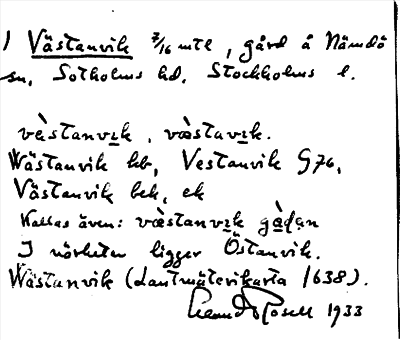 1 Västanvik 7/16 mtl, gård å Nämdö
sn, Sotholms hd, Stockholms l.
vɛ̀stanvɪk, væ̀stavɪk.
Wästanvik hb, Vestanvik G76,
Västanvik bek, ek
Kallas även: væ̀stanvɪk gàḍan
I närheten ligger Östanvik.
Wästanvik (Lantmäterikarta 1638).
Rosell 1933